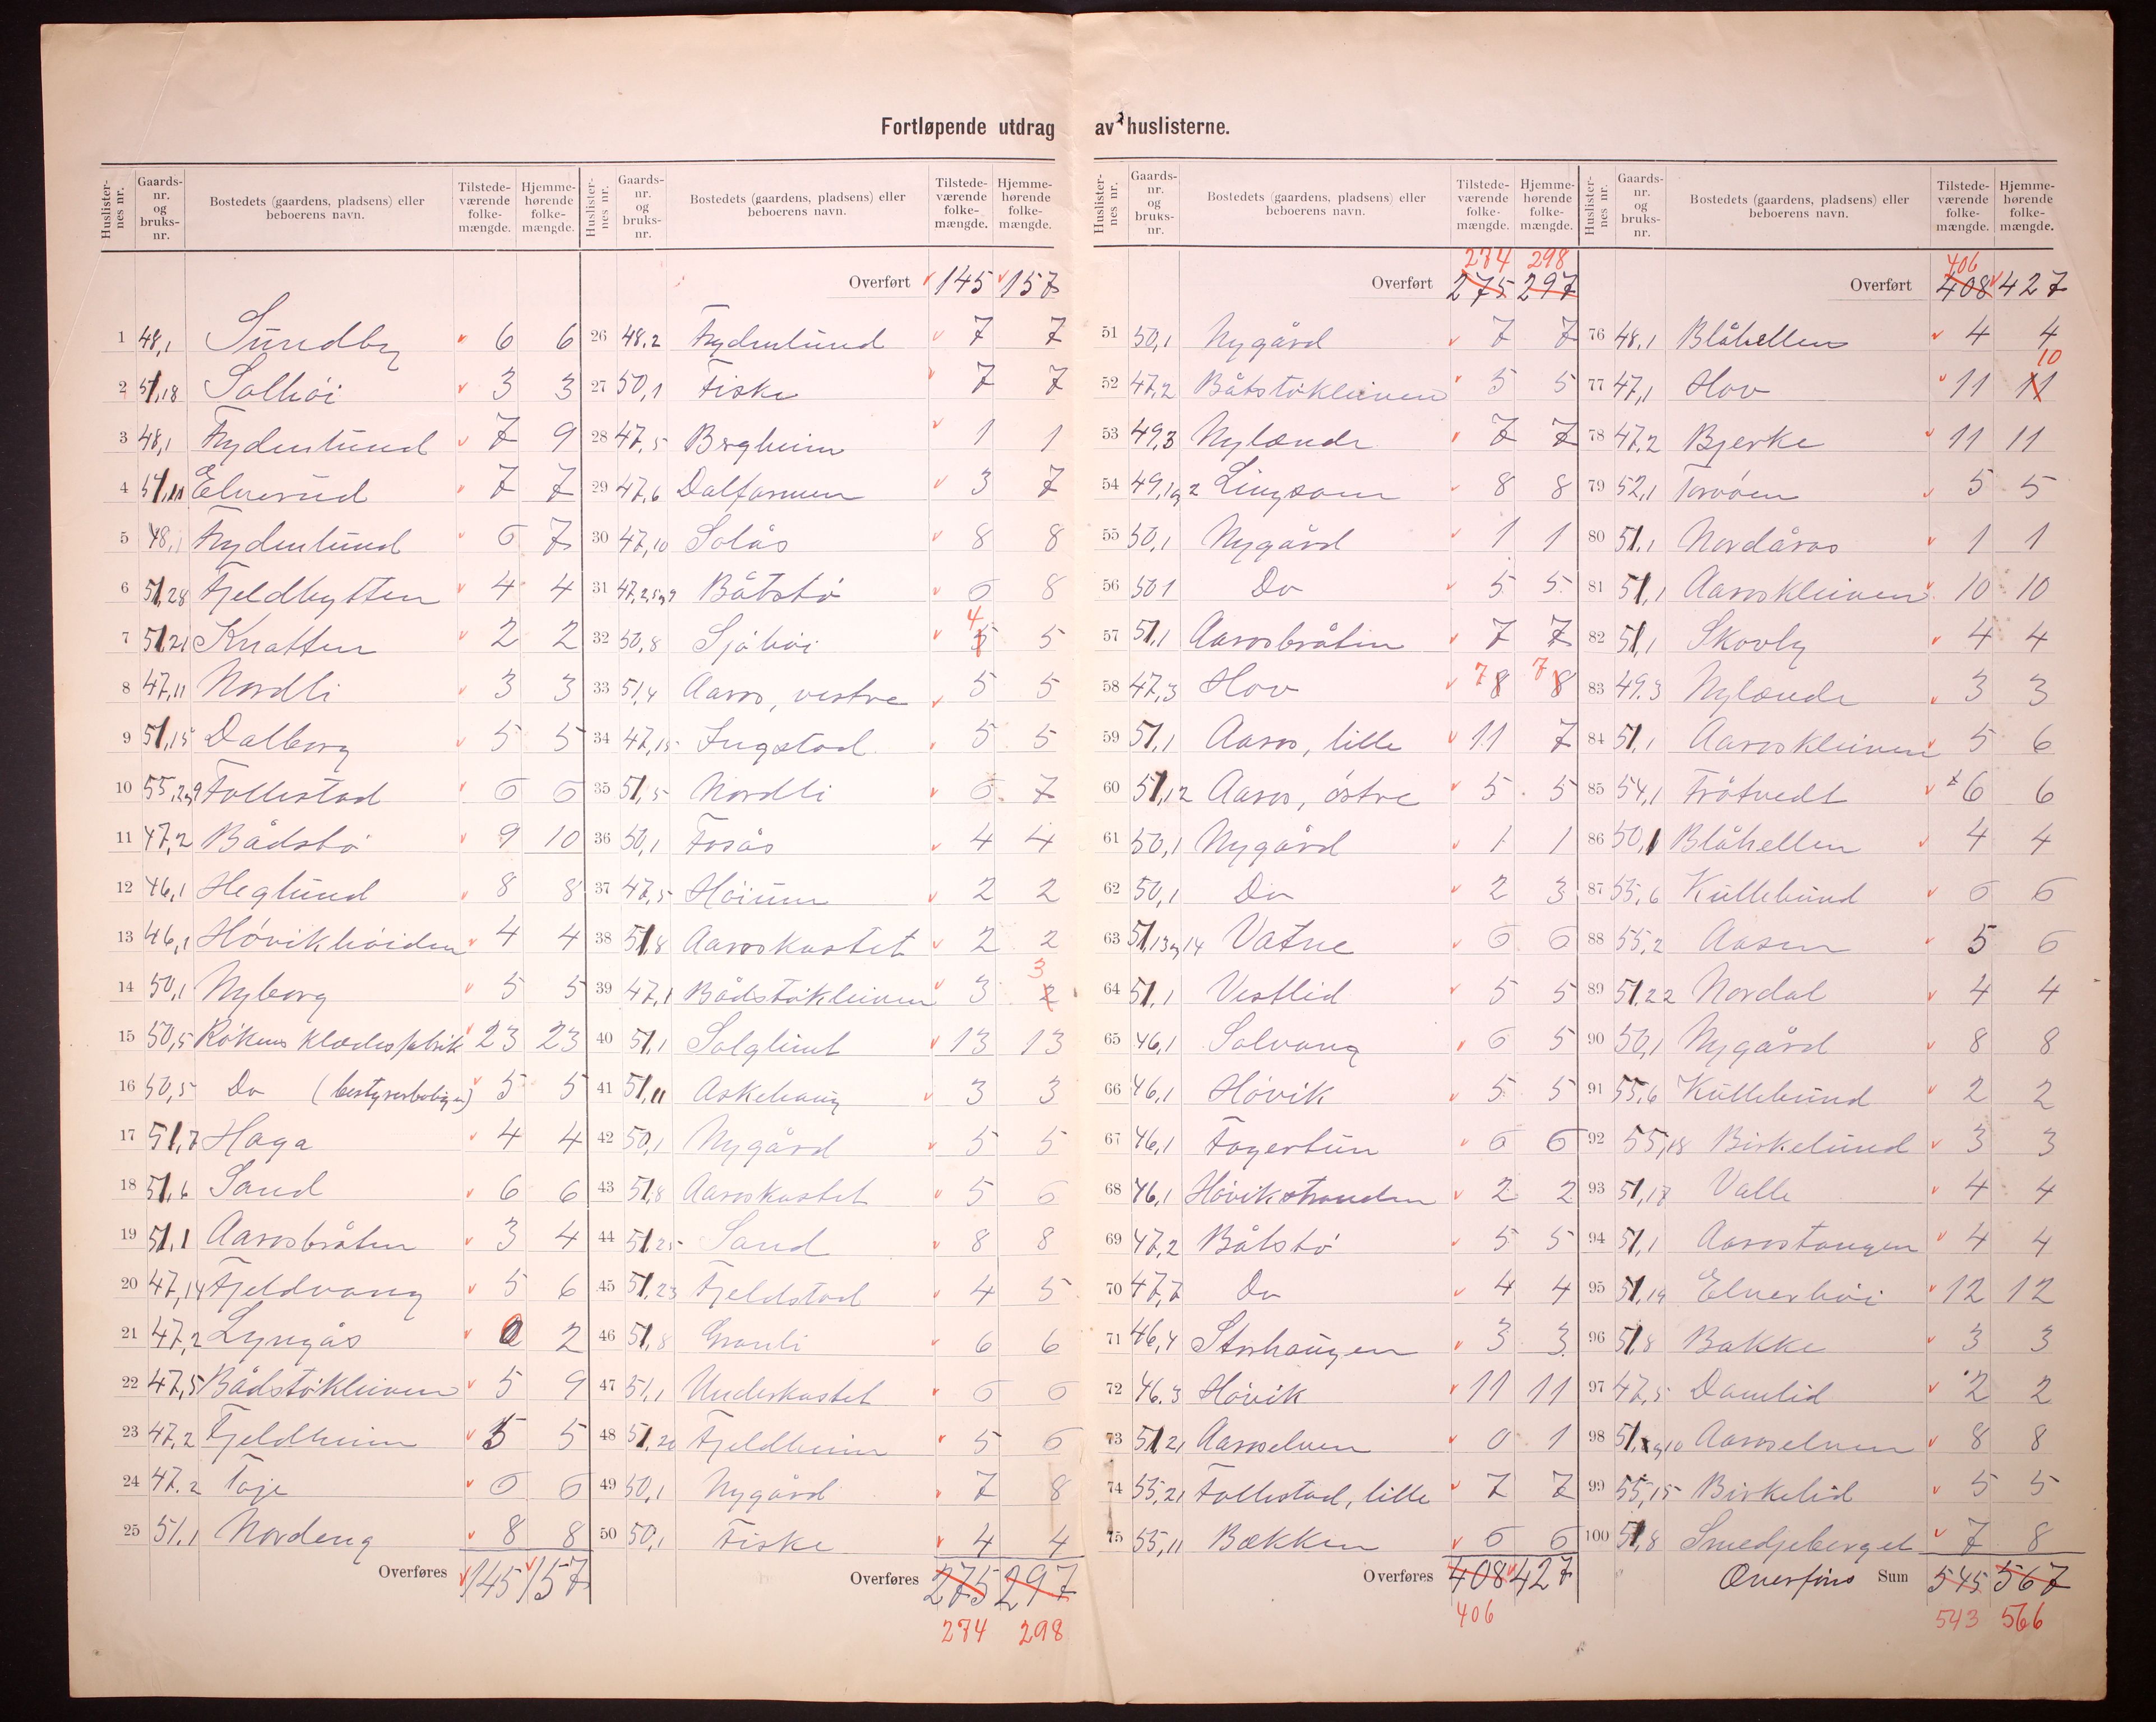 Fortløpende utdrag av huslisterne.
Huslister-nes nr. Gaards-nr. og bruks-nr. Bostedets (gaardens, pladsens) eller beboerens navn. Tilstede-værende folke-mængde. Hjemme-hørende folke-mængde.
1 48,1 Sundby 6 6
2 51,18 Solhöi 3 3
3 48,1 Frydenlund 7 9
4 51,11 Elverud 7 7
5 48,1 Frydenlund 6 7
6 51,28 Fjeldhytten 4 4
7 51,21 Knatten 2 2
8 47,11 Nordli 3 3
9 51,15 Dalborg 5 5
10 55,2og9 Follestad 6 6
11 47,2 Bådstö 9 10
12 46,1 Heglund 8 8
13 46,1 Hövikhöiden 4 4
14 50,1 Nyborg 5 5
15 50,5 Rökens klædesfabrik 23 23
16 50,5 Do (bestyrerbolig) 5 5
17 51,7 Haga 4 4
18 51,6 Sand 6 6
19 51,1 Aarosbråten 3 4
20 47,14 Fjeldvang 5 6
21 47,2 Lyngås 0 2
22 47,5 Bådstökleiven 5 9
23 47,2 Fjeldheim 5 5
24 47.2 Toje 6 6
25 51.1 Nordeng 8 8
Overføres 145 157
Huslister-nes nr. Gaards-nr. og bruks-nr. Bostedets (gaardens, pladsens) eller beboerens navn. Tilstede-værende folke-mængde. Hjemme-hørende folke-mængde.
Overført 145 157
26 48.2 Frydenlund 7 7
27 50,1 Fiske 7 7
28 47,5 Bergheim 1 1
29 47,6 Dalfarmen 3 7
30 47,10 Solås 8 8
31 47,2,5og9 Båtstö 6 8
32 50,8 Sjöhöi 5 4 5
33 51,4 Aaros, vestre 5 5
34 47,15 Ingstad 5 5
35 51,5 Nordli 6 7
36 50,1 Fosås 4 4
37 47,5 Höium 2 2
38 51,8 Aaroskastet 2 2
39 47,1 Bådstökleiven 3 2 3
40 51,1 Solglimt 13 13
41 51,11 Askehaug 3 3
42 50,1 Nygård 5 5
43 51,8 Aaroskastet 5 6
44 51,25 Sand 8 8
45 51,23 Fjeldstad 4 5
46 51,8 Granli 6 6
47 51,1 Underkastet 6 6
48 51,20 Fjeldheim 5 6
49 50,1 Nygård 7 8
50 50,1 Fiske 4 4
Overføres 275 297
274 298
Huslister-nes nr. Gaards-nr. og bruks-nr. Bostedets (gaardens, pladsens) eller beboerens navn. Tilstede-værende folke-mængde. Hjemme-hørende folke-mængde.
274 298
Overført 275 297
51 50,1 Nygård 7 7
52 47,2 Båtstökleiven 5 5
53 49,3 Nylænde 7 7
54 49,1og2 Lingsom 8 8
55 50,1 Nygård 1 1
56 50 1 Do 5 5
57 51,1 Aarosbråten 7 7
58 47,3 Hov 7 8 7 8
59 51,1 Aaros, lille 11 7
60 51,12 Aaros, östre 5 5
61 50,1 Nygård 1 1
62 50,1 Do 2 3
63 51,13og14 Vatne 6 6
64 51.1 Vestlid 5 5
65 46,1 Solvang 6 5
66 46,1 Hövik 5 5
67 46,1 Fagertun 6 6
68 46,1 Hövikstranden 2 2
69 47,2 Båtstö 5 5
70 47,7 Do 4 4
71 46,4 Storhaugen 3 3
72 46.3 Hövik 11 11
73 51 21 Aaroselven 0 1
74 55,21 Follestad, lille 7 7
75 55,11 Bækken 6 6
Overføres 408 427
406
Huslister-nes nr. Gaards-nr. og bruks-nr. Bostedets (gaardens, pladsens) eller beboerens navn. Tilstede-værende folke-mængde. Hjemme-hørende folke-mængde.
406
Overført 408 427
76 48.1 Blåhellen 4 4
77 47,1 Hov 11 11 10
78 47,2 Bjerke 11 11
79 52,1 Torvöen 5 5
80 51.1 Nordåros 1 1
81 51,1 Aaroskleiven 10 10
82 51,1 Skovly 4 4
83 49.3 Nylænde 3 3
84 51,1 Aaroskleiven 5 6
85 54,1 Tråtvedt 6 6
86 50,1 Blåhellen 4 4
87 55,6 Kullebund 6 6
88 55,2 Aasen 5 6
89 51,22 Nordal 4 4
90 50,1 Nygård 8 8
91 55,6 Kullebund 2 2
92 55,18 Birkelund 3 3
93 51,17 Valle 4 4
94 51,1 Aarostangen 4 4
95 51,19 Elverhöi 12 12
96 51,8 Bakke 3 3
97 47,5 Damlid 2 2
98 51,og10 Aaroselven 8 8
99 55,15 Birkelid 5 5
100 51,8 Smedjeberget 7 8
Overföres Sum 545 567
543 566